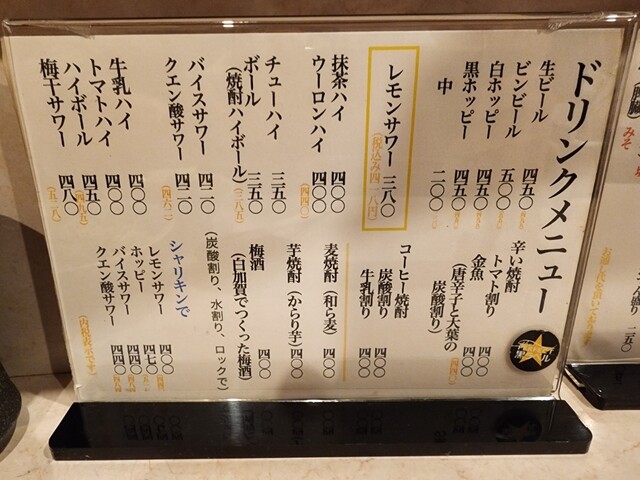 ドリンクメニュー
生ビール 四五〇
ビンビール 五〇〇
白ホッピー 四五〇
黒ホッピー 四五〇
中 二〇〇
レモンサワー 三八〇
(税込み四一八円)
抹茶ハイ 四〇〇
ウーロンハイ 四〇〇
(四四〇)
チューハイ 三五〇
ボール
(焼酎ハイボール) 三五〇
(三八五)
バイスサワー 四二〇
クエン酸サワー 四二〇
(四六二)
牛乳ハイ 四〇〇
トマトハイ 四〇〇
ハイボール 四五〇
梅干サワー 四八〇
(五二八)
辛い焼酎
トマト割り 四〇〇
金魚 四〇〇
(唐辛子と大葉の
炭酸割り)
(四四〇)
コーヒー焼酎
炭酸割り 四〇〇
牛乳割り 四〇〇
麦焼酎 (和ら麦) 四〇〇
芋焼酎 (からり芋) 四〇〇
梅酒
(白加賀でつくった梅酒) 四〇〇
(炭酸割り、水割り、ロックで)
シャリキンで
レモンサワー 四〇〇
ホッピー 四七〇
バイスサワー 四四〇
クエン酸サワー 四四〇
(内税表示です)
みそ
二五〇